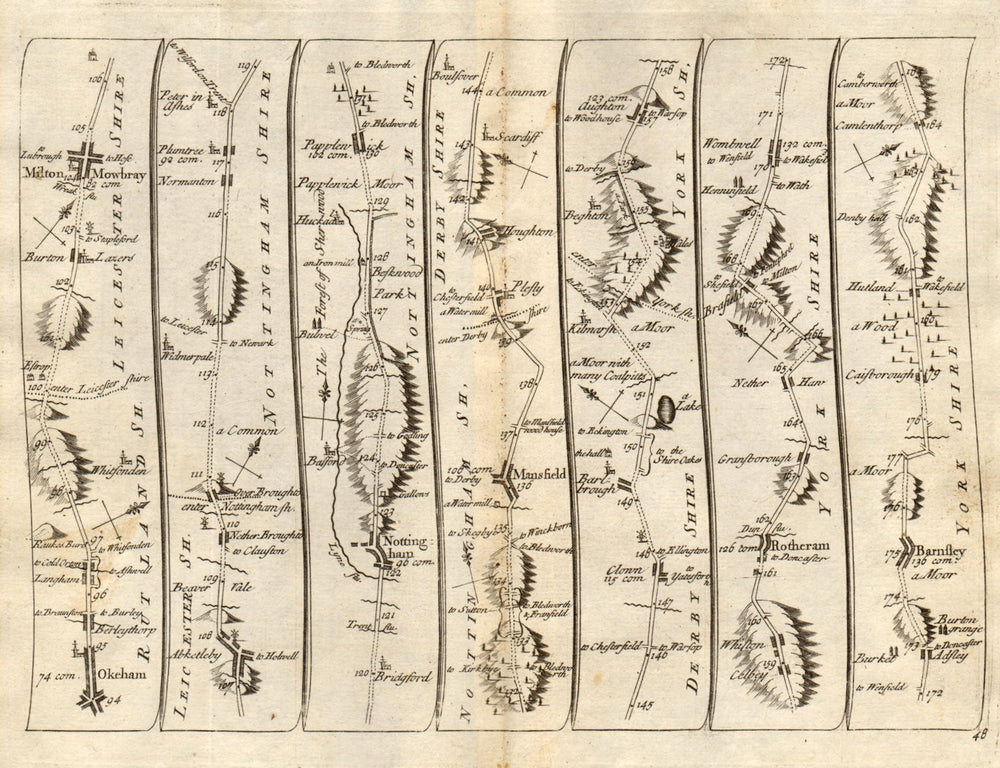 106
105
to Lubrough
to Hose
Milton
Mowbray
104
82 com
Wreak flu
103
to Stapleford
Burton
Lazers
102
101
100
enter Leicester shire
LEICESTER SHIRE
99
Whitsonden
98
97
to Whitsonden
to Cold Orton
to Ashwell
Langham
96
to Braunston
to Burley
Berleythorp
95
74 com
Okeham
94
RUTLAND SH.
119
to Wilford on Trent
Peter in
Ashes
118
Plumtree
99 com.
117
Normanton
116
115
114
to Leicester
to Newark
Widmerpale
113
112
a Common
111
Over Broughton
enter Nottingham sh.
110
Nether Broughto
to Clauston
109
Beaver Vale
108
Abkettleby
to Holwell
107
NOTTINGHAM SHIRE
LEICESTER SH.
to Bledworth
131
to Bledworth
Papplewick
102 com.
130
Papplewick Moor
129
Huckad
128
an Iron mill
Beskwood
Park
127
Bulwel
Spring
126
The Forest of Sherwood
125
to Gealing
124
to Doncaster
Basford
Gallows
123
Notting
ham
96 com.
122
Lyne flu.
121
Trent flu.
120
Bridgford
NOTTINGHAM SH.
Boulsover
144
a Common
Scardiff
143
142
Houghton
141
to Chesterfield
140
Plesly
a Water mill
enter Derby shire
139
138
to Mansfield
woodhouse
137
106 com
to Derby
Mansfield
136
a Water mill
to Skegby
135
Winckbern
to Bledworth
134
to Sutton
to Bledworth
& Fransfield
133
to Kirkbye
to Bledworth
132
DERBY SHIRE
NOTTINGHAM SH.
158
123 com.
Aughton
to Woodhouse
to Warsop
157
156
to Derby
155
Beghton
Wales
154
enter York sh.
153
Kilmarsh
a Moor
152
a Moor with
many Coalpitts
151
a Lake
to Eckington
the hall
150
to the
Shire Oakes
Barl-
brough
149
148
to Ellington
Clown
115 com
to Yatesford
147
to Chesterfield
to Warsop
146
145
YORK SH.
DERBY SHIRE
172
171
Wombwell
132 com.
to Wenfield
to Wakefield
170
Hemminfield
to Wath
169
168
to Shefield
to Milton
Brafield
167
166
165
Nether Haw
164
Gransborough
163
162
Dun flu.
126 com
Rotheram
to Doncaster
161
160
Whiston
159
Celbey
YORK SHIRE
185
to Camberworth
a Moor
Camlenthorp
184
183
Denby hall
182
181
Hutland
to Wakefield
180
a Wood
Caisborough
179
178
177
a Moor
176
175
Barnsley
136 com.
a Moor
174
Burton
grange
173
to Doncaster
Burket
Adsley
to Wenfield
172
YORK SHIRE
48